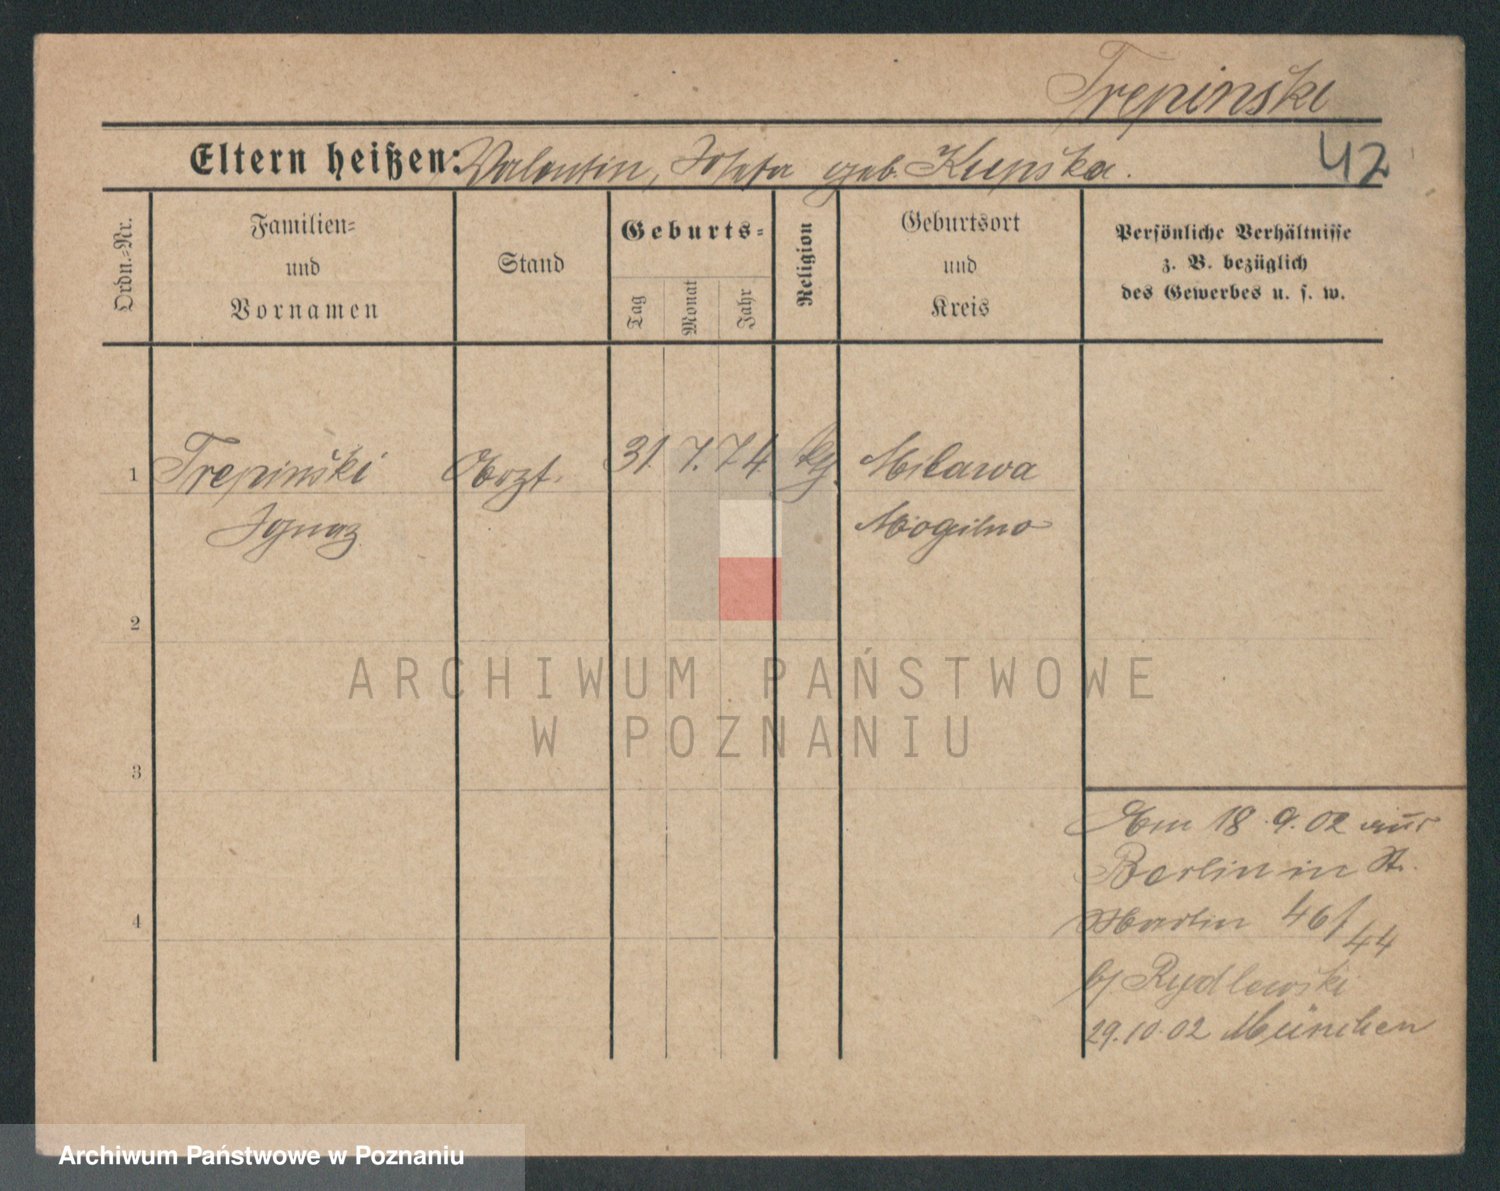 Trepinski
Eltern heißen: Valentin, Josefa geb. Kupska.
42
Ordn.-Nr.
Familien-
und
Vornamen
Stand
Geburts-
Tag
Monat
Jahr
Religion
Geburtsort
und
Kreis
Persönliche Verhältnisse
z. B. bezüglich
des Gewerbes u. s. w.
1 Trepinski 31. 7. 74 Milawa
Ignaz Mogilno
2
3
4
Am 18.9.02 aus
Berlin in St.
Martin 46/44
b/ Rydlewski
29.10.02 München
ARCHIWUM PAŃSTWOWE
W POZNANIU
Archiwum Państwowe w Poznaniu